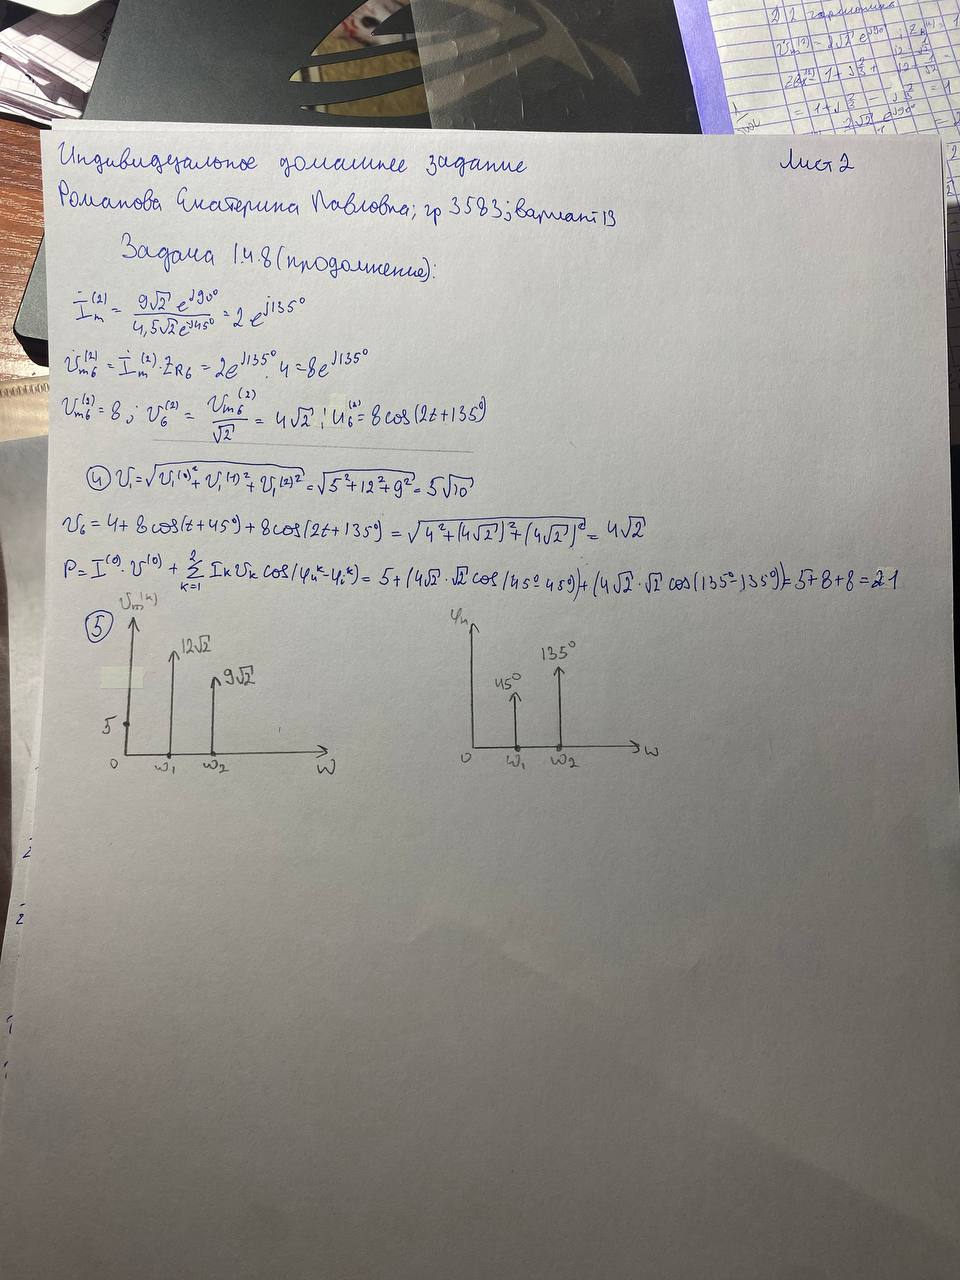 Индивидуальное домашнее задание
Лист 2
Романова Екатерина Павловна; гр 3583; вариант 13
Задача 1.4.8 (продолжение):
İₘ⁽²⁾ = 9√2 e^j90° / 4,5√2 e^-j45° = 2 e^j135°
U̇ₘ₆⁽²⁾ = İₘ⁽²⁾ · Z_R6 = 2e^j135° · 4 = 8e^j135°
Uₘ₆⁽²⁾ = 8; U₆⁽²⁾ = Uₘ₆⁽²⁾ / √2 = 4√2; u₆⁽²⁾ = 8 cos(2t + 135°)
④ U₁ = √(U₁⁽⁰⁾² + U₁⁽¹⁾² + U₁⁽²⁾²) = √(5² + 12² + 9²) = 5√10
U₆ = 4 + 8 cos(t + 45°) + 8 cos(2t + 135°) = √(4² + (4√2)² + (4√2)²) = 4√2
P = I⁽⁰⁾ · U⁽⁰⁾ + Σ_{k=1}^{2} IₖUₖ cos(φᵤᵏ - φᵢᵏ) = 5 + (4√2 · √2 cos(45° - 45°) + (4√2 · √2 cos(135° - 135°)) = 5 + 8 + 8 = 21
⑤
Uₘ⁽ᵏ⁾
12√2
9√2
5
0 ω₁ ω₂ ω
φᵤ
45°
135°
0 ω₁ ω₂ ω
2 2 гармоника